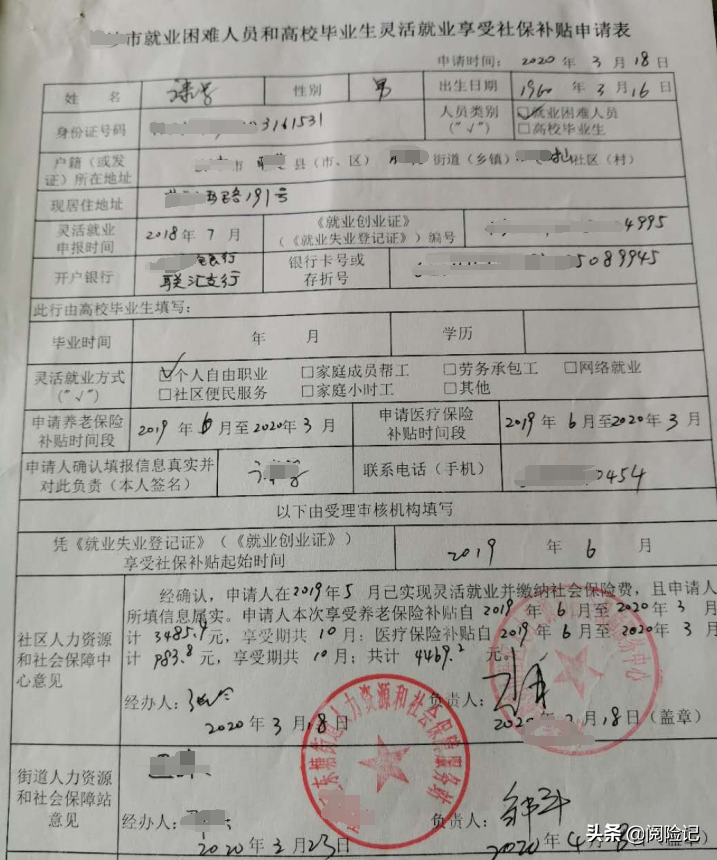 市就业困难人员和高校毕业生灵活就业享受社保补贴申请表
申请时间: 2020 年 3 月 18 日
姓 名 性别 男 出生日期 1960 年 3 月 16 日
身份证号码 3161531 人员类别("√") ☑就业困难人员 □高校毕业生
户籍(或发证)所在地址 市 县(市、区) 街道(乡镇) 社区(村)
现居住地址 路191号
灵活就业申报时间 2018 年 7 月 《就业创业证》(《就业失业登记证》)编号 4995
开户银行 银行 联汇支行 银行卡号或存折号 5089945
此行由高校毕业生填写:
毕业时间 年 月 学历
灵活就业方式("√") ☑个人自由职业 □家庭成员帮工 □劳务承包工 □网络就业
□社区便民服务 □家庭小时工 □其他
申请养老保险补贴时间段 2019 年 6 月至 2020 年 3 月 申请医疗保险补贴时间段 2019 年 6 月至 2020 年 3 月
申请人确认填报信息真实并对此负责(本人签名) 联系电话(手机) 0454
以下由受理审核机构填写
凭《就业失业登记证》(《就业创业证》)享受社保补贴起始时间 2019 年 6 月
社区人力资源和社会保障中心意见
经确认,申请人在2019年5 月已实现灵活就业并缴纳社会保险费,且申请人
所填信息属实。申请人本次享受养老保险补贴自 2019 年 6 月至 2020 年 3 月
计 3485.4 元,享受期共 10 月;医疗保险补贴自 2019 年 6 月至 2020 年 3 月
计 983.8 元,享受期共 10 月;共计 4469.2 元。
经办人: 负责人:
2020 年 3 月 18 日 2020 年 3 月 18 日(盖章)
街道人力资源和社会保障站意见
经办人: 负责人:
2020 年 3 月 23 日 2020 年 4 月 8 日(盖章)
街道人力资源和社会保障服务站
头条 @阅险记